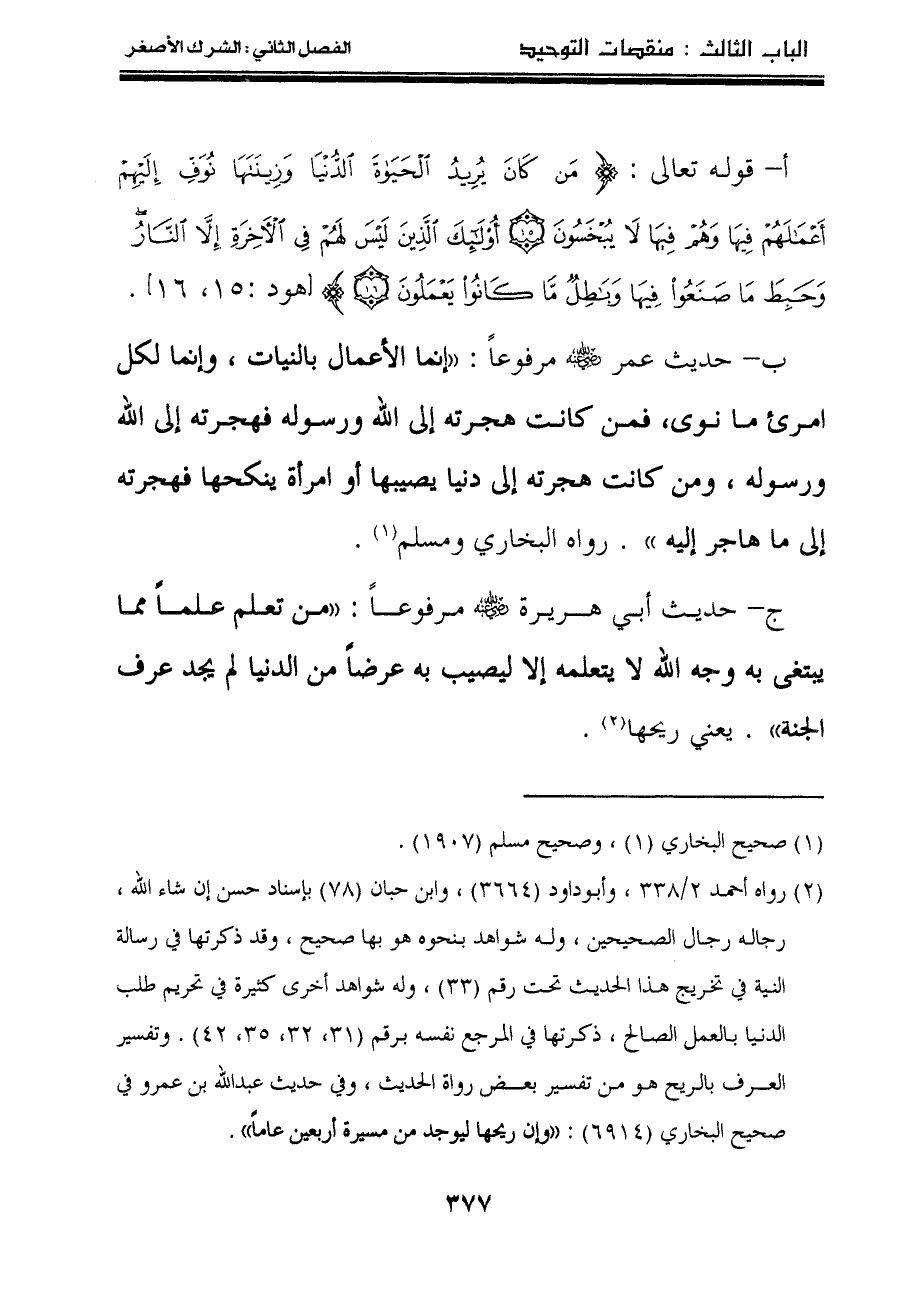 الباب الثالث : منقصات التوحيد الفصل الثاني : الشرك الأصغر
أ– قوله تعالى : ﴿ مَن كَانَ يُرِيدُ ٱلْحَيَوٰةَ ٱلدُّنْيَا وَزِينَتَهَا نُوَفِّ إِلَيْهِمْ
أَعْمَـٰلَهُمْ فِيهَا وَهُمْ فِيهَا لَا يُبْخَسُونَ ١٥ أُوْلَـٰٓئِكَ ٱلَّذِينَ لَيْسَ لَهُمْ فِى ٱلْأَخِرَةِ إِلَّا ٱلنَّارُ ۖ
وَحَبِطَ مَا صَنَعُوا۟ فِيهَا وَبَـٰطِلٌ مَّا كَانُوا۟ يَعْمَلُونَ ١٦ ﴾ [هود :١٥، ١٦] .
ب– حديث عمر ﷺ مرفوعاً : «إنما الأعمال بالنيات ، وإنما لكل
امرئ ما نوى، فمن كانت هجرته إلى الله ورسوله فهجرته إلى الله
ورسوله ، ومن كانت هجرته إلى دنيا يصيبها أو امرأة ينكحها فهجرته
إلى ما هاجر إليه » . رواه البخاري ومسلم(١) .
ج– حديث أبي هريرة ﷺ مرفوعاً : «من تعلم علماً مما
يبتغى به وجه الله لا يتعلمه إلا ليصيب به عرضاً من الدنيا لم يجد عرف
الجنة» . يعني ريحها(٢) .
(١) صحيح البخاري (١) ، وصحيح مسلم (١٩٠٧) .
(٢) رواه أحمد ٣٣٨/٢ ، وأبوداود (٣٦٦٤) ، وابن حبان (٧٨) بإسناد حسن إن شاء الله ،
رجاله رجال الصحيحين ، وله شواهد بنحوه هو بها صحيح ، وقد ذكرتها في رسالة
النية في تخريج هذا الحديث تحت رقم (٣٣) ، وله شواهد أخرى كثيرة في تحريم طلب
الدنيا بالعمل الصالح ، ذكرتها في المرجع نفسه برقم (٣١، ٣٢، ٣٥، ٤٢) . وتفسير
العرف بالريح هو من تفسير بعض رواة الحديث ، وفي حديث عبدالله بن عمرو في
صحيح البخاري (٦٩١٤) : «وإن ريحها ليوجد من مسيرة أربعين عاماً» .
٣٧٧